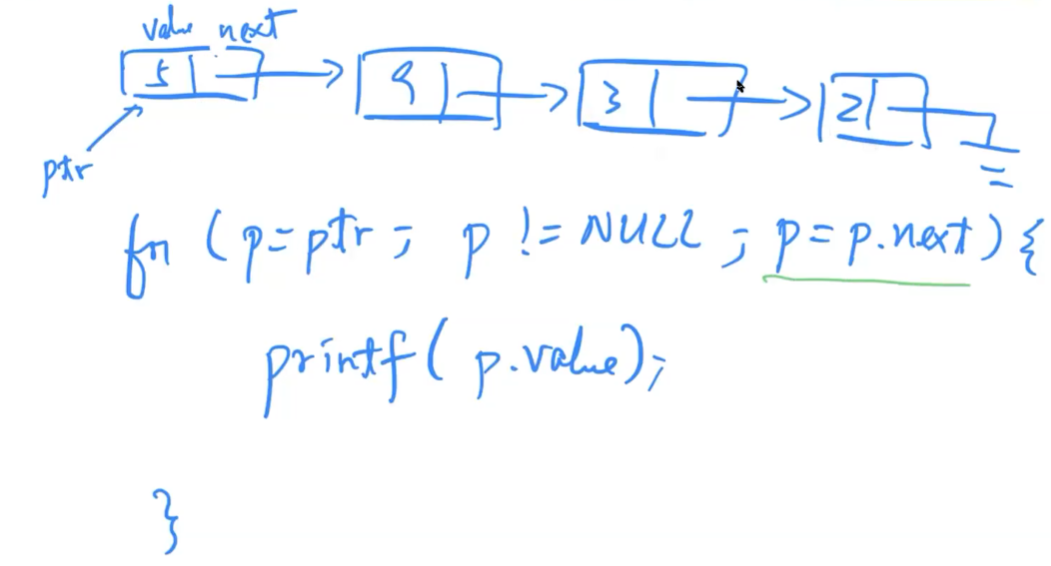 value next
5 9 3 2
ptr
for (p=ptr; p != NULL; p=p.next) {
printf( p.value);
}